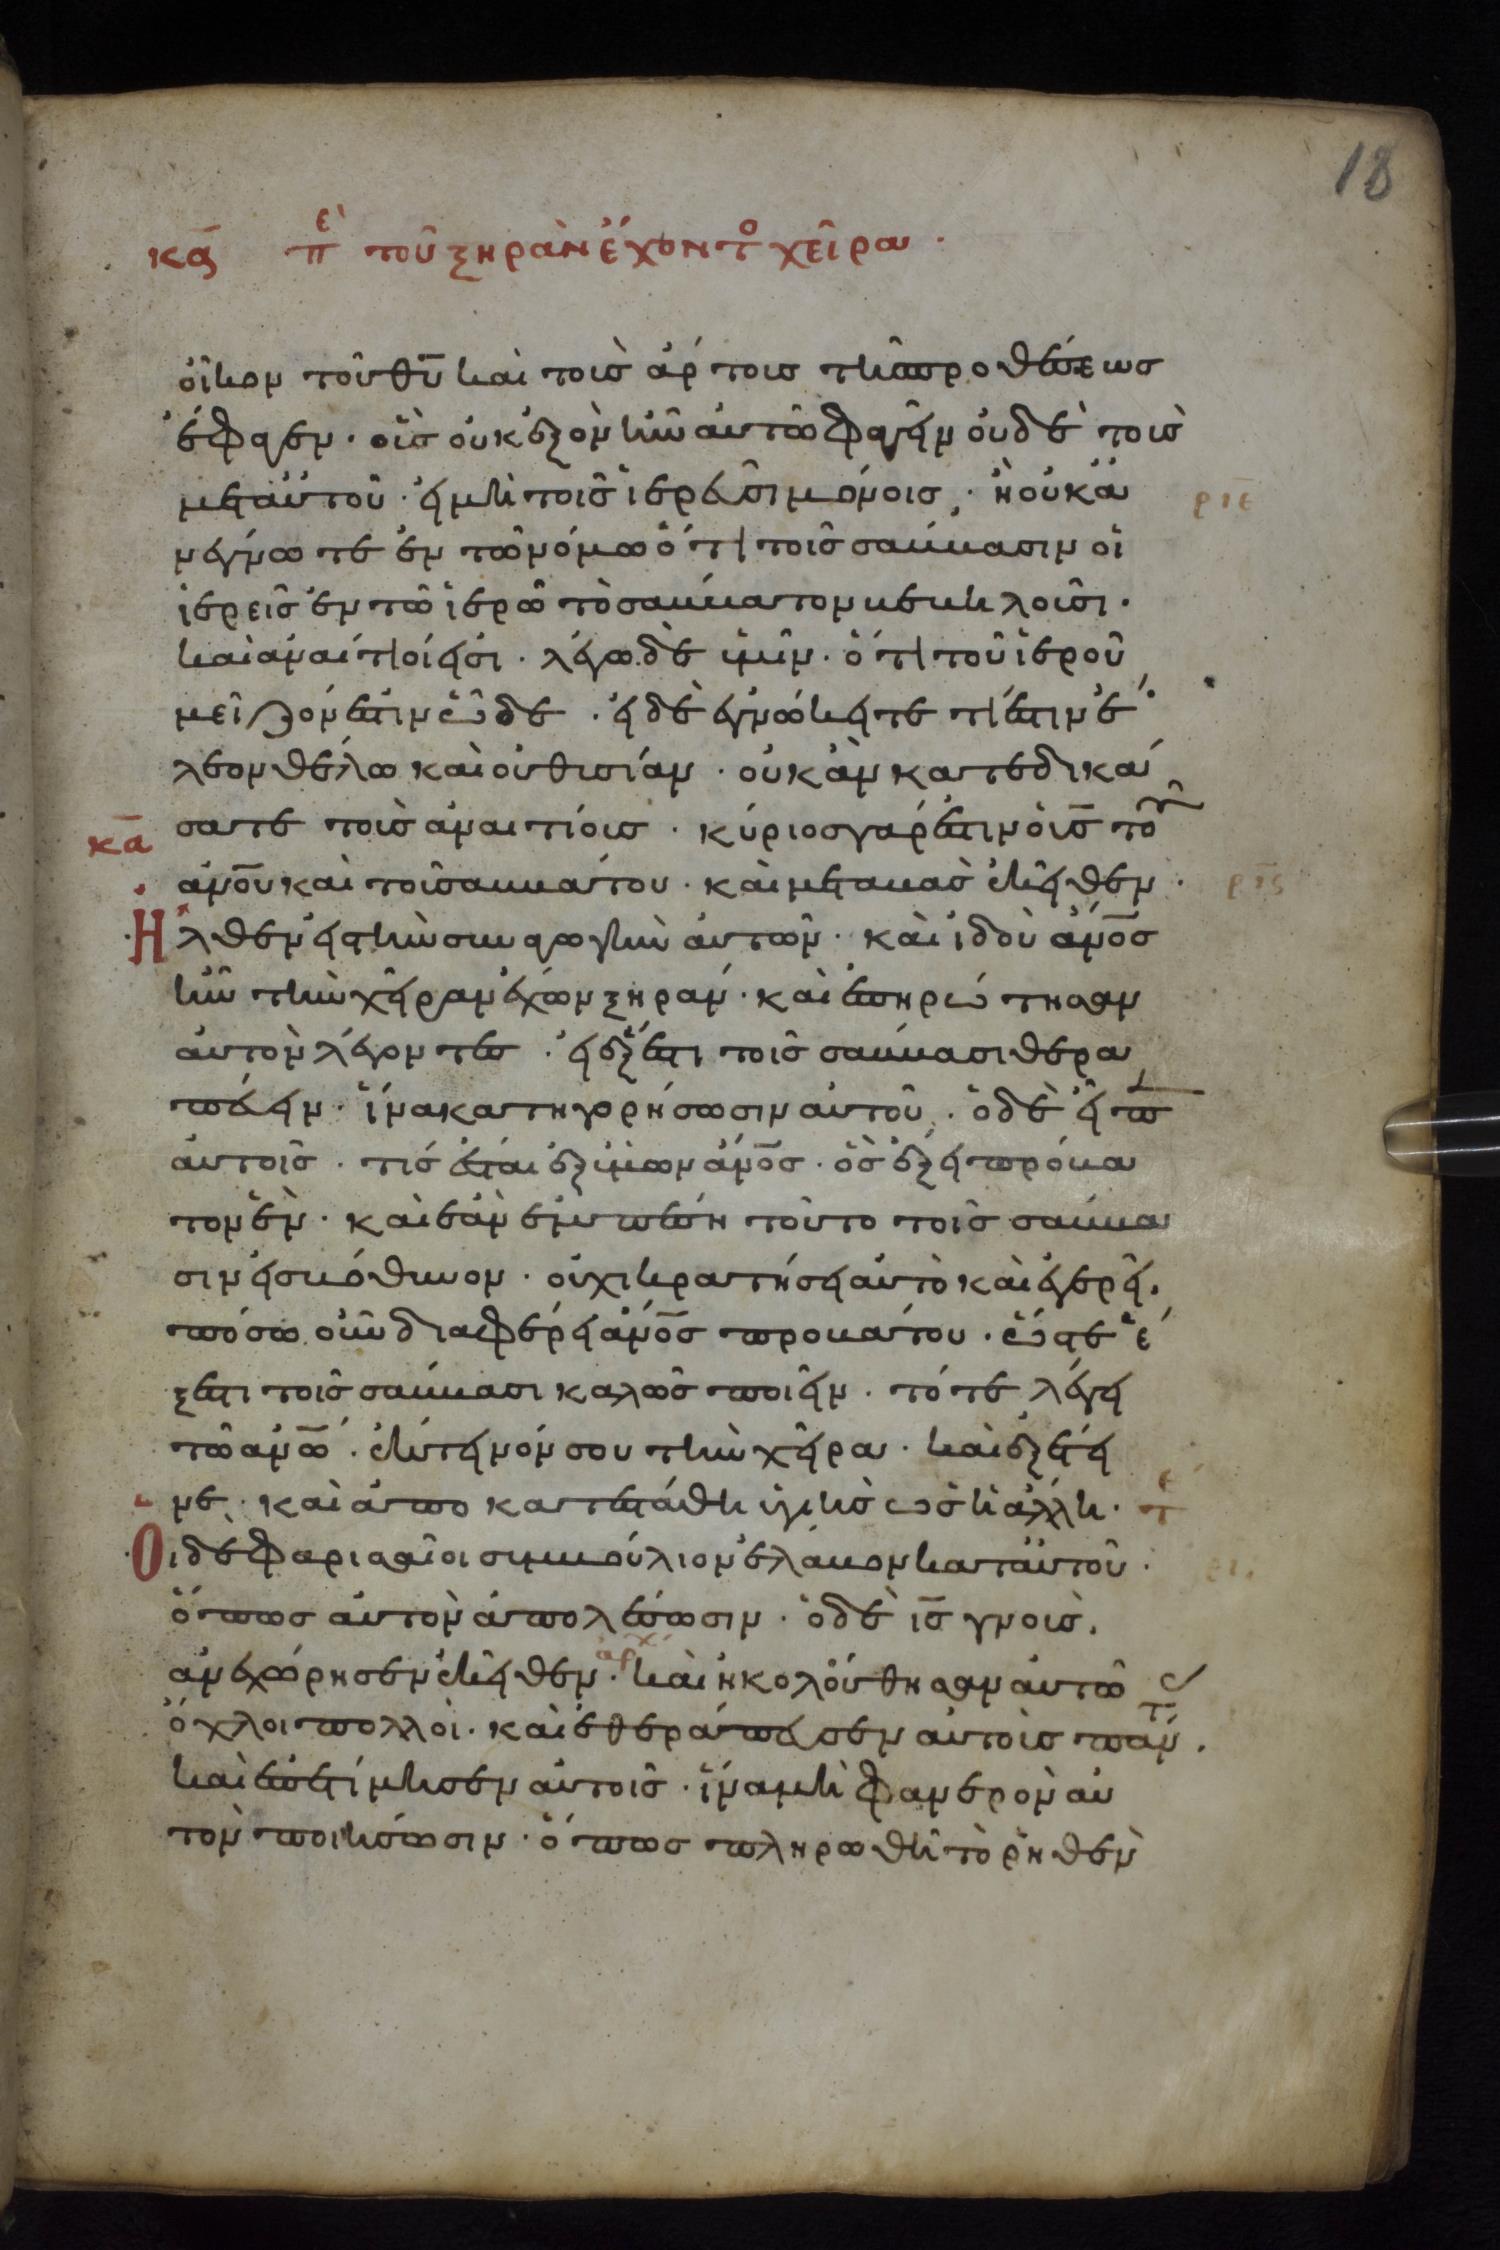 18
κα̅ πὲ τοῦ ξηρὰν ἔχοντο χεῖρα·
οἶκον τοῦ θυ̅ καὶ τοὺς ἄρτους τῆς προθέσεως
ἔφαγεν· οὓς οὐκ ἐξὸν ἦν αὐτῶ φαγεῖν οὐδὲ τοῖς
μετ' αὐτοῦ· εἰ μὴ τοῖς ἱερεῦσι μόνοις· ἢ οὐκ ἀ
νέγνωτε ἐν τῶ νόμω ὅτι τοῖς σάββασιν οἱ
ἱερεῖς ἐν τῶ ἱερῶ τὸ σάββατον βεβηλοῦσι·
καὶ ἀναίτιοί εἰσι· λέγω δὲ ὑμῖν· ὅτι τοῦ ἱεροῦ
μεῖζόν ἐστιν ὧδε· εἰ δὲ ἐγνώκειτε τί ἐστιν ἔ
λεον θέλω καὶ οὐ θυσίαν· οὐκ ἂν κατεδικά
σατε τοὺς ἀναιτίους· κύριος γάρ ἐστιν ὁ υἱς̅ τοῦ
κα̅ ἀνο̅υ καὶ τοῦ σαββάτου· καὶ μεταβὰς ἐκεῖθεν· ρις̅
Ἦλθεν εἰς τὴν συναγωγὴν αὐτῶν· καὶ ἰδοὺ ἄνο̅ς
ἦν τὴν χεῖραν ἔχων ξηράν· καὶ ἐπηρώτησαν
αὐτὸν λέγοντες· εἰ ἔξεστι τοῖς σάββασι θερα
πεύειν· ἵνα κατηγορήσωσιν αὐτοῦ· ὁ δὲ εἶπεν
αὐτοῖς· τίς ἔσται ἐξ ὑμῶν ἄνο̅ς· ὃς ἕξει πρόβα
τον ἕν· καὶ ἐὰν ἐμπέση τοῦτο τοῖς σάββα
σιν εἰς βόθυνον· οὐχὶ κρατήσει αὐτὸ καὶ ἐγερεῖ·
πόσω οὖν διαφέρει ἄνο̅ς προβάτου· ὥστε ἔ
ξεστι τοῖς σάββασι καλῶς ποιεῖν· τότε λέγει
τῶ ἀνω̅· ἔκτεινόν σου τὴν χεῖρα· καὶ ἐξέτει
νε· καὶ ἀποκατεστάθη ὑγιὴς ὡς ἡ ἄλλη·
Οἱ δὲ φαρισαῖοι συμβούλιον ἔλαβον κατ' αὐτοῦ·
ὅπως αὐτὸν ἀπολέσωσιν· ὁ δὲ ις̅ γνοὺς·
ἀνεχώρησεν ἐκεῖθεν· καὶ ἠκολούθησαν αὐτῶ
ὄχλοι πολλοὶ· καὶ ἐθεράπευσεν αὐτοὺς πάντ·
καὶ ἐπετίμησεν αὐτοῖς· ἵνα μὴ φανερὸν αὐ
τὸν ποιήσωσιν· ὅπως πληρωθῆ τὸ ῥηθὲν